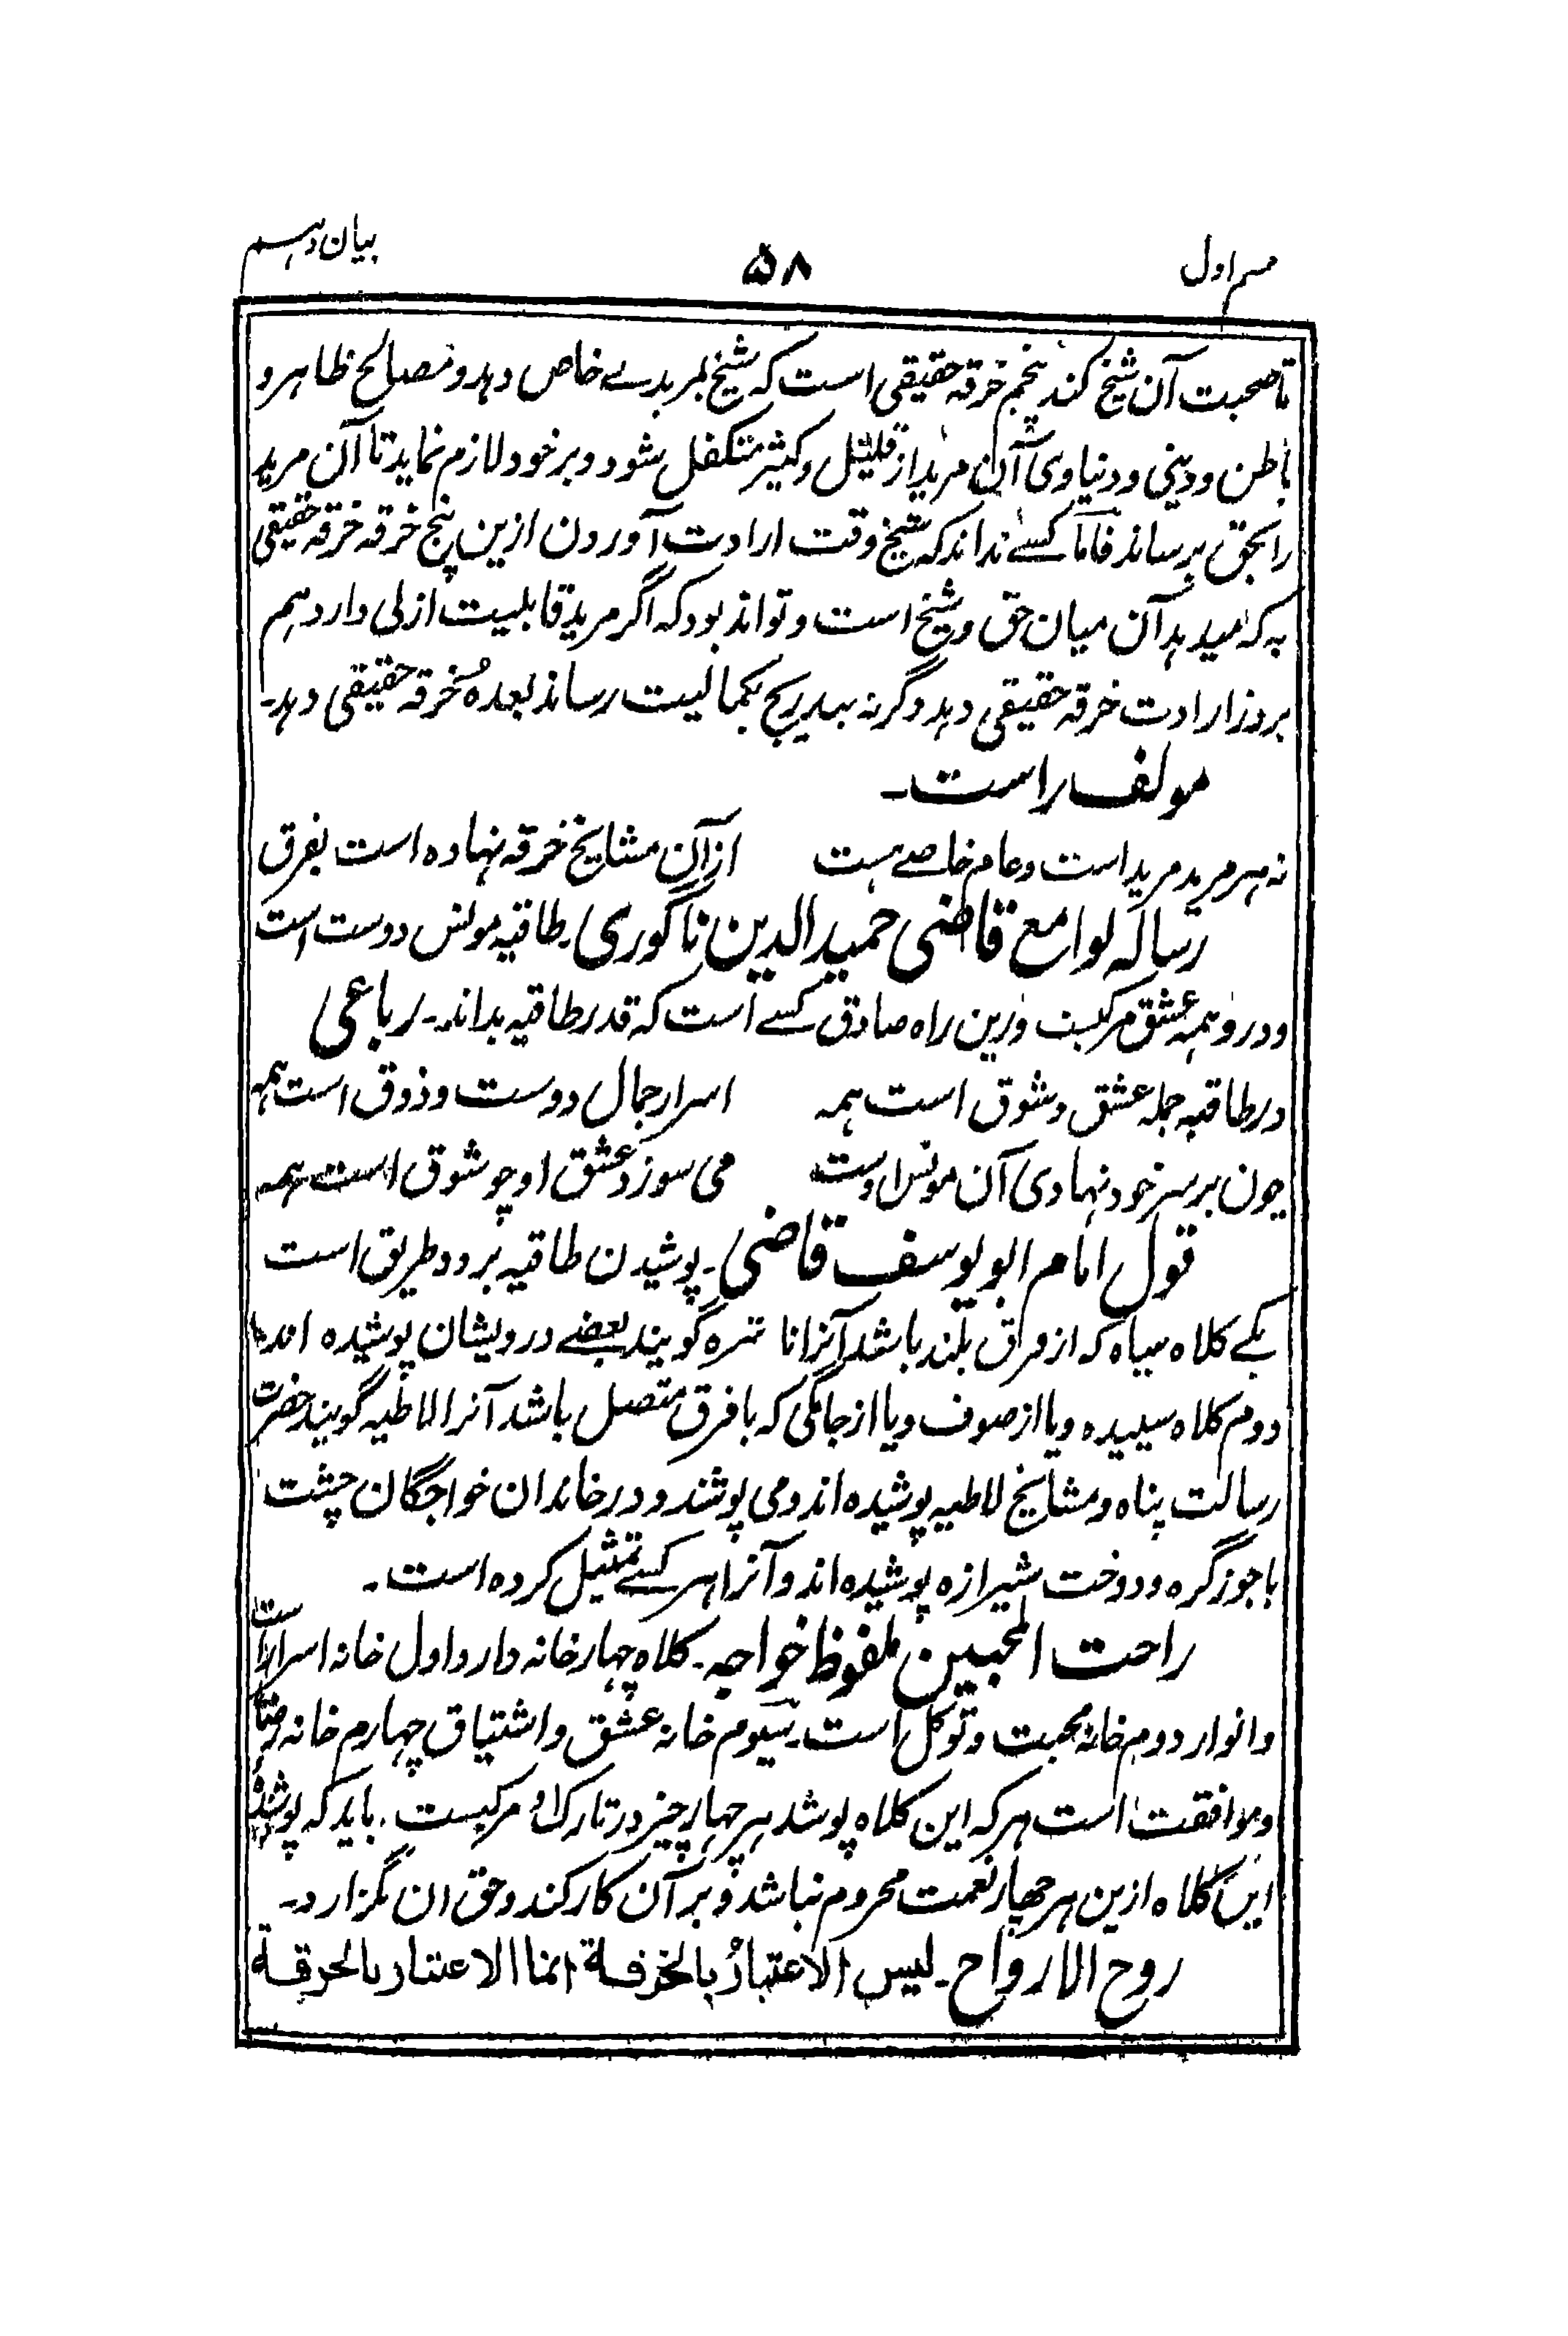 قسم اول ۵۸ بیان دہم
تا صحبت آن شیخ کند پنجم خرقہ حقیقی است کہ شیخ بمریدے خاص دہد و مصالح ظاہر و
باطن و دینی و دنیاوی آن مرید از قلیل و کثیر متکفل شود و بر خود لازم نماید تا آن مرید
را بحق برساند فاما کسے نداند کہ شیخ وقت ارادت آوردن ازین پنج خرقہ خرقہ حقیقی
بہ کہ میدہد آن میان حق و شیخ است و تواند بود کہ اگر مرید قابلیت ازلی دارد ہم
بروز ارادت خرقہ حقیقی دہد و گرنہ بتدریج بکمالیت رساند بعدہُ خرقہ حقیقی دہد۔
مولف راست۔
نہ ہر مرید مرید است و عام خاصے ہست از آن مشایخ خرقہ نہادہ است بفرق
رسالہ لوامع قاضی حمید الدین ناگوری۔ طاقیہ مونس دوست است
و درو ہمہ عشق مرکبست و درین راہ صادق کسے است کہ قدر طاقیہ بداند۔ رباعی
در طاقیہ جملہ عشق و شوق است ہمہ اسرار جمال دوست و ذوق است ہمہ
چون بر سر خود نہادی آن مونس اوست می سوز د عشق او چو شوق است ہمہ
قول امام ابو یوسف قاضی۔ پوشیدن طاقیہ بر دو طریق است
یکے کلاہ سیاہ کہ از فرق بلند باشد آنرا ناشزہ گویند بعضے درویشان پوشیدہ اند
دوم کلاہ سپیدہ و یا از صوف و یا از جامگی کہ با فرق متصل باشد آنرا لاطیہ گویند حضرت
رسالت پناہ و مشایخ لاطیہ پوشیدہ اند و می پوشند و در خاندان خواجگان چشت
با جوز گرہ و دوخت شیرازہ پوشیدہ اند و آنرا ہر کسے تمثیل کردہ است۔
راحت المحبین ملفوظ خواجہ۔ کلاہ چہار خانہ دارد اول خانہ اسرار است
و انوار دوم خانہ محبت و توکل است۔ سیوم خانہ عشق و اشتیاق چہارم خانہ رضا
و موافقت است ہر کہ این کلاہ پوشد ہر چہار چیز در تارک او مرکبست۔ باید کہ پوشندہ
این کلاہ ازین ہر چہار نعمت محروم نباشد و بر آن کار کند و حق ان بگزارد۔
روح الارواح۔ لیس الاعتبارُ بالخرقة انما الاعتبار بالحرقة